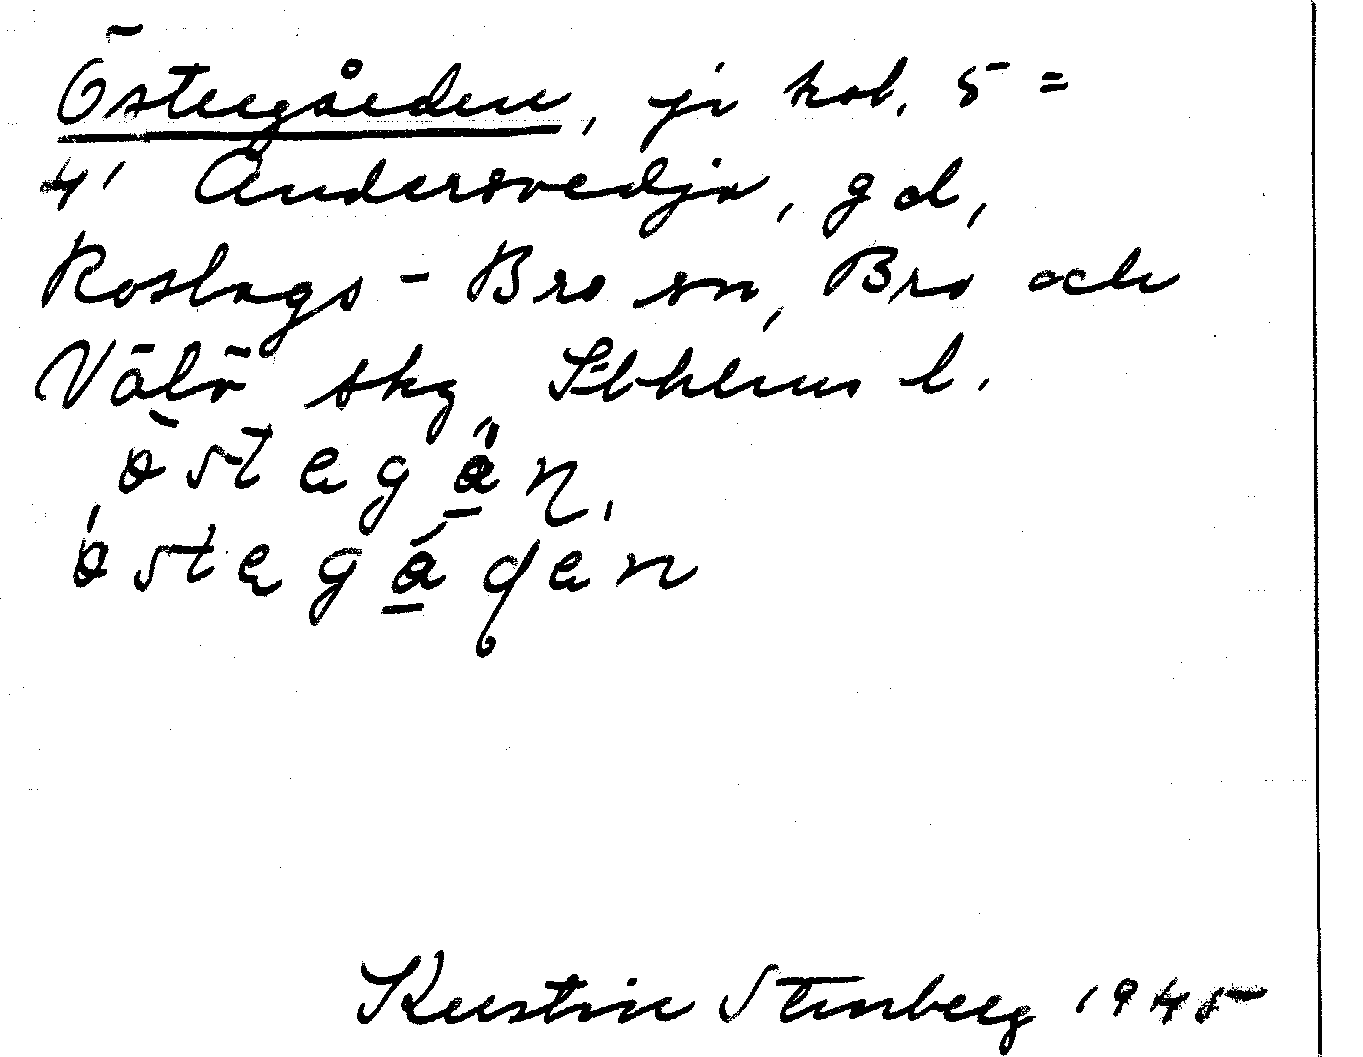 Östergården, jr kol. 5 =
4' Andersvedja, gd,
Roslags-Bro sn, Bro och
Vätö skg, Sthlms l.
östegån,
östegåden
Kerstin Stenberg 1945